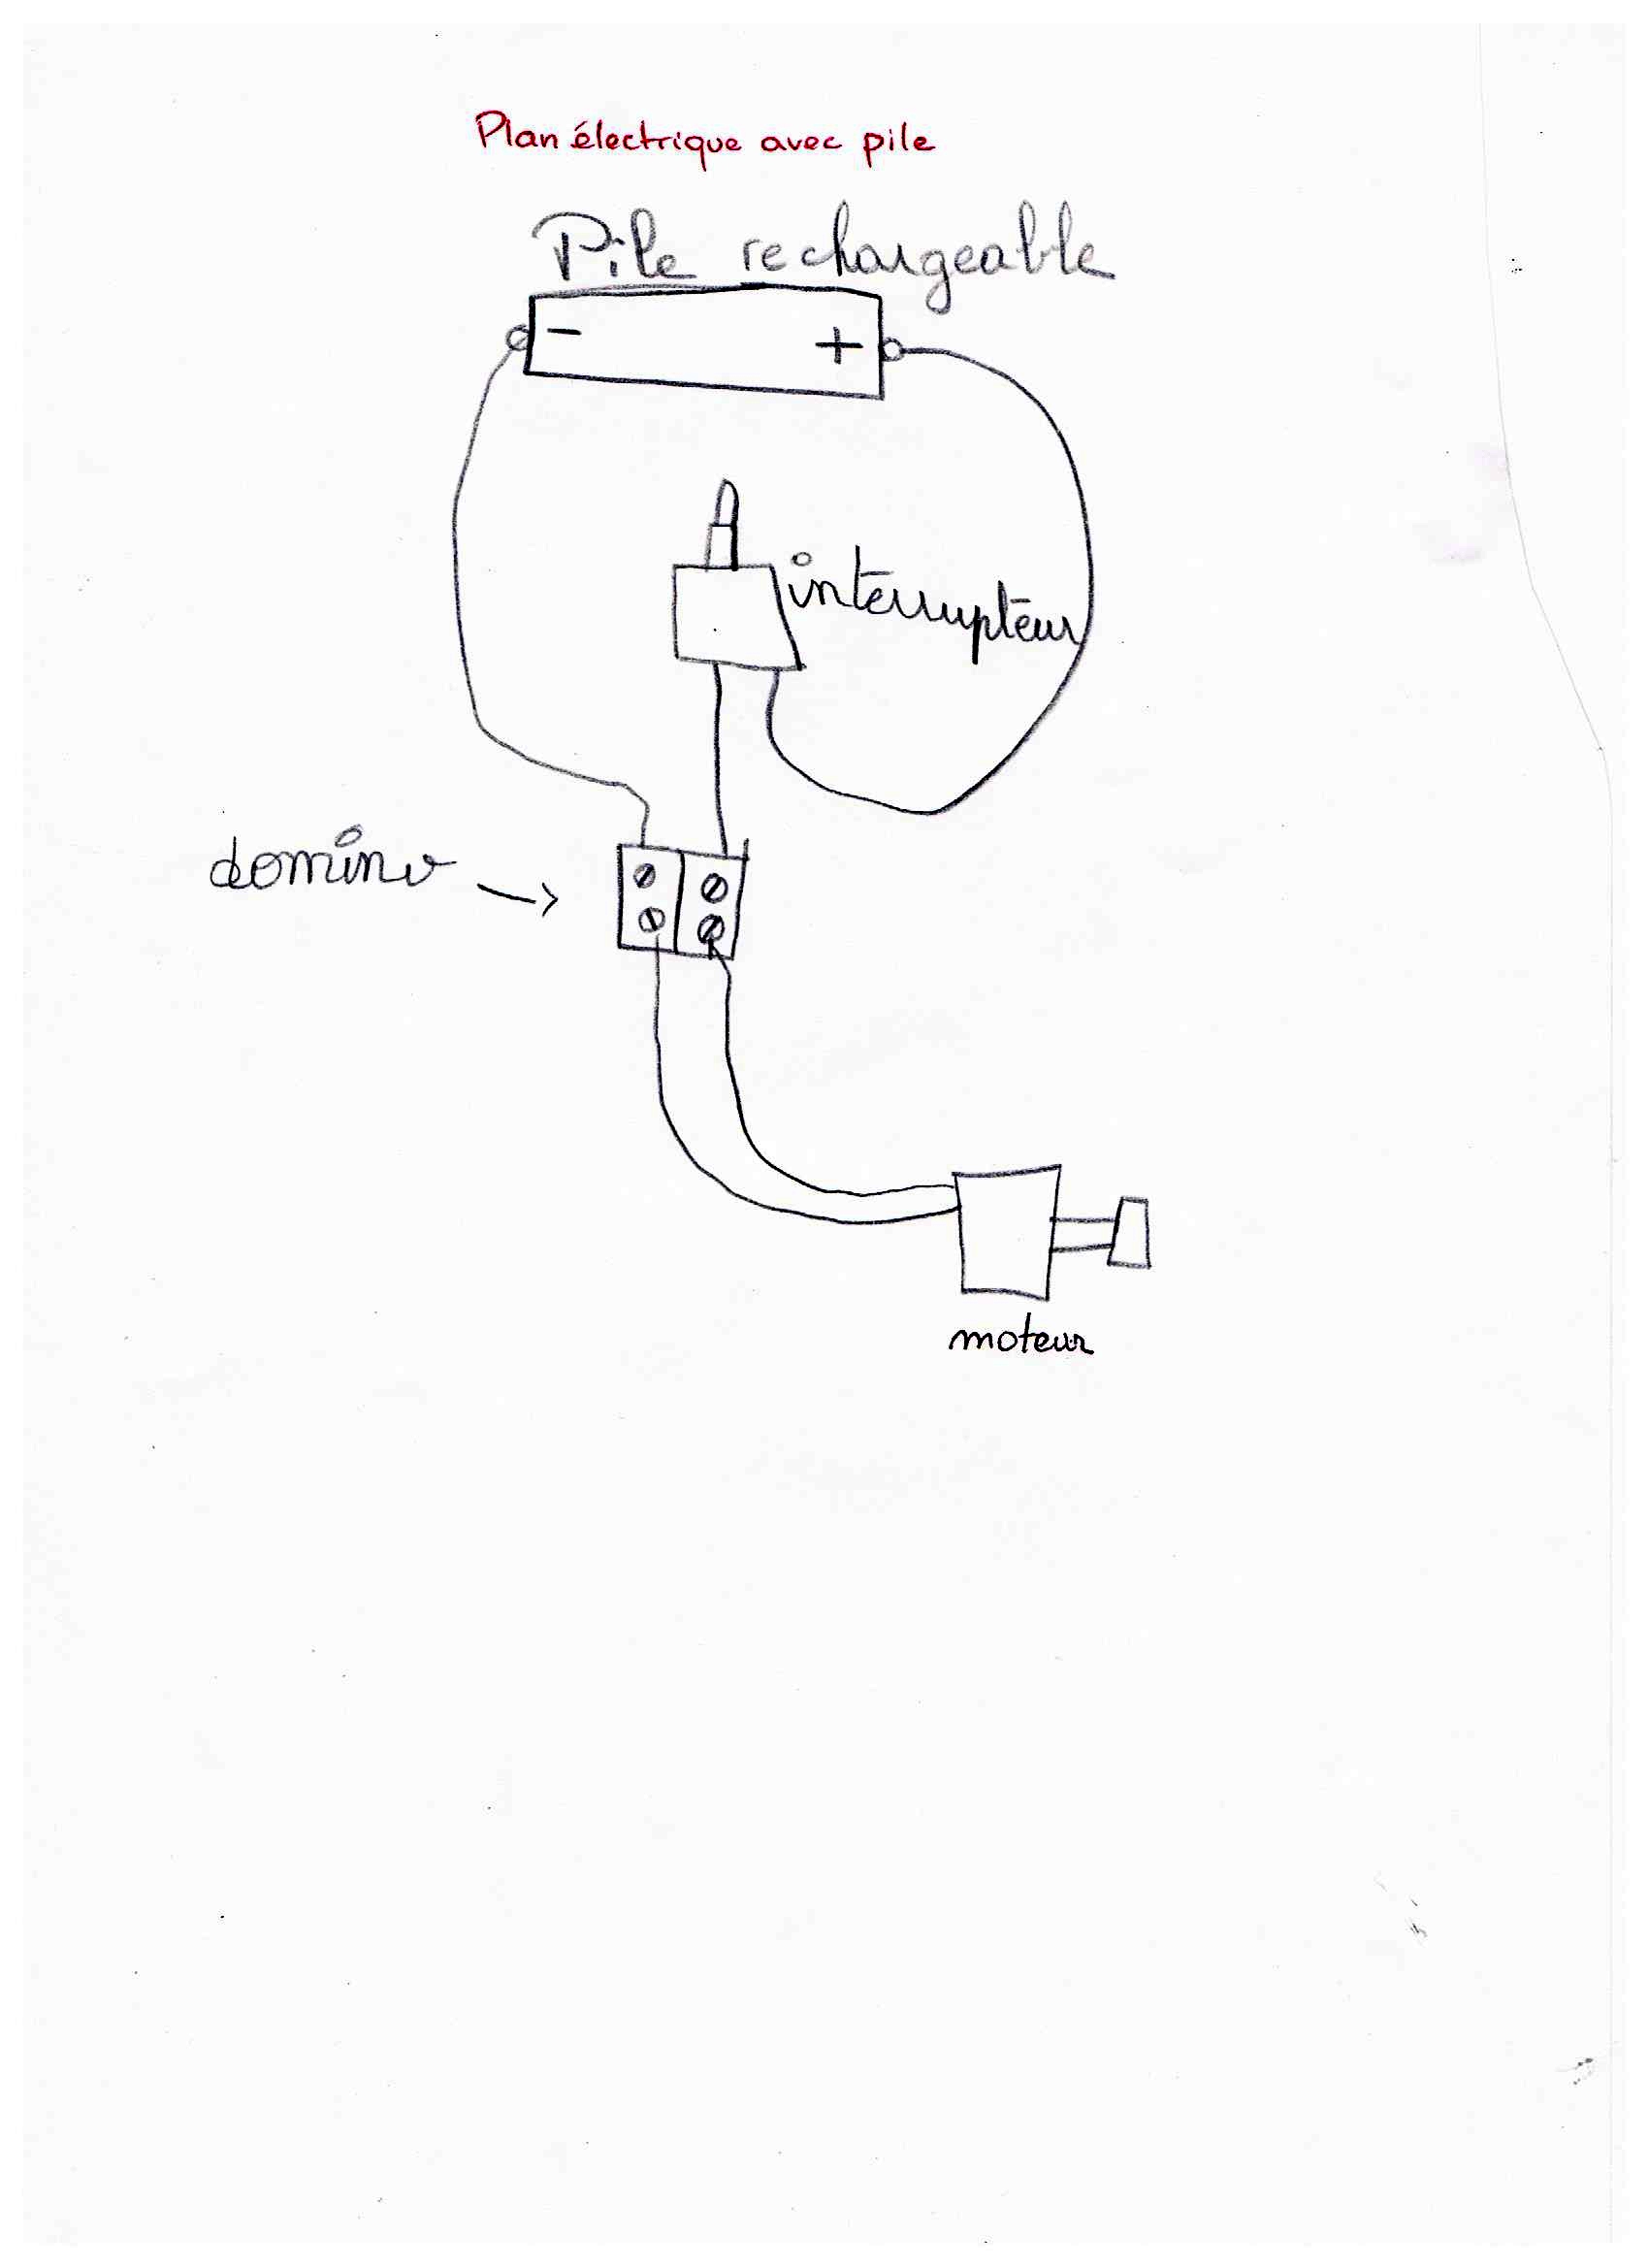 Plan électrique avec pile
Pile rechargeable
-
+
interrupteur
domino
moteur